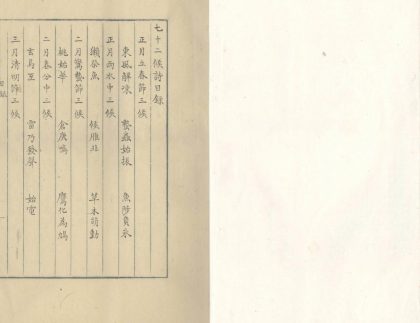 七十二候詩目錄
正月立春節三候
東風解凍 蟄蟲始振 魚陟負冰
正月雨水中三候
獺祭魚 候雁北 草木萌動
二月驚蟄節三候
桃始華 倉庚鳴 鷹化為鳩
二月春分中三候
玄鳥至 雷乃發聲 始電
三月清明節三候